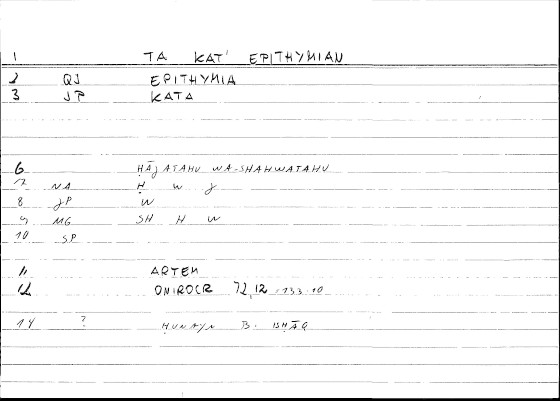 1 TA KAT' EPITHYMIAN
2 QJ EPITHYMIA
3 JP KATA
6 ḤĀǦATAHU WA-SHAHWATAHU
7 NA Ḥ W J
8 JP W
9 MG SH H W
10 SP
11 ARTEM
12 ONIROCR 72,12 133.10
14 ? ḤUNAYN B. ISḤĀQ